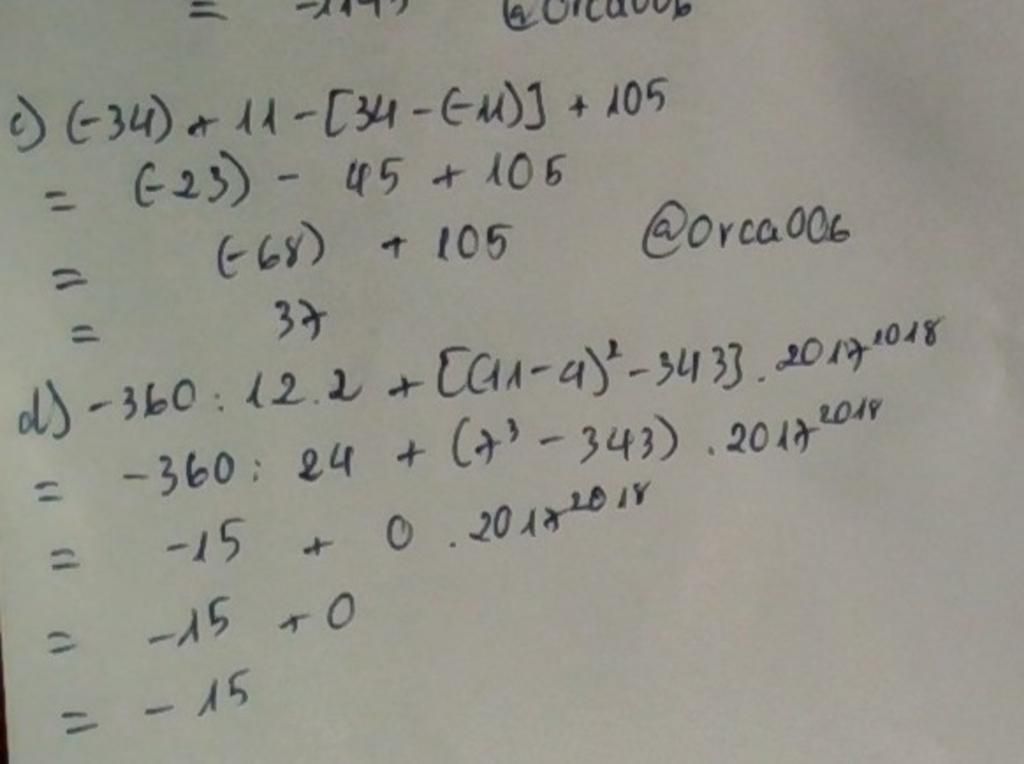 = @Orca006
c) (-34) + 11 - [34 - (-11)] + 105
= (-23) - 45 + 105
= (-68) + 105 @Orca006
= 37
d) -360 : 12.2 + [(11-4)² - 343] . 2017²⁰¹⁸
= -360 : 24 + (7³ - 343) . 2017²⁰¹⁸
= -15 + 0 . 2017²⁰¹⁸
= -15 + 0
= -15